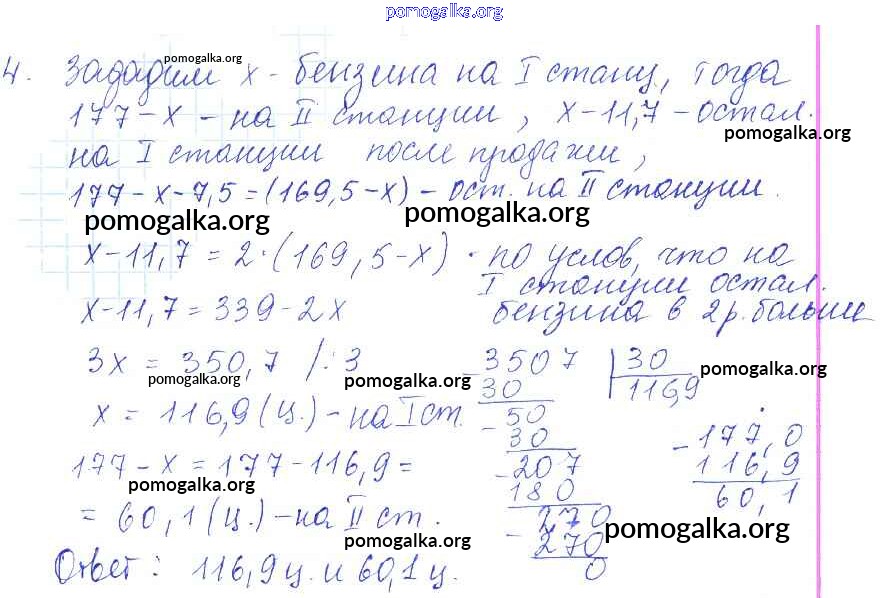 pomogalka.org
pomogalka.org
4. Зададим x - бензина на I станц., тогда
177-x - на II станции, x-11,7 - остал.
pomogalka.org
на I станции после продажи,
177-x-7,5=(169,5-x) - ост. на II станции.
pomogalka.org pomogalka.org
x-11,7=2·(169,5-x) · по услов, что на
I станции остал.
x-11,7=339-2x бензина в 2 р. больше
3x = 350,7 /:3
pomogalka.org pomogalka.org pomogalka.org
x = 116,9 (ц.) - на I ст.
177-x=177-116,9=
pomogalka.org
= 60,1 (ц.) - на II ст.
pomogalka.org pomogalka.org
Ответ: 116,9 ц. и 60,1 ц.
3507 | 30
30 116,9
- 50
30
- 207
180
- 270
270
0
- 177,0
116,9
60,1